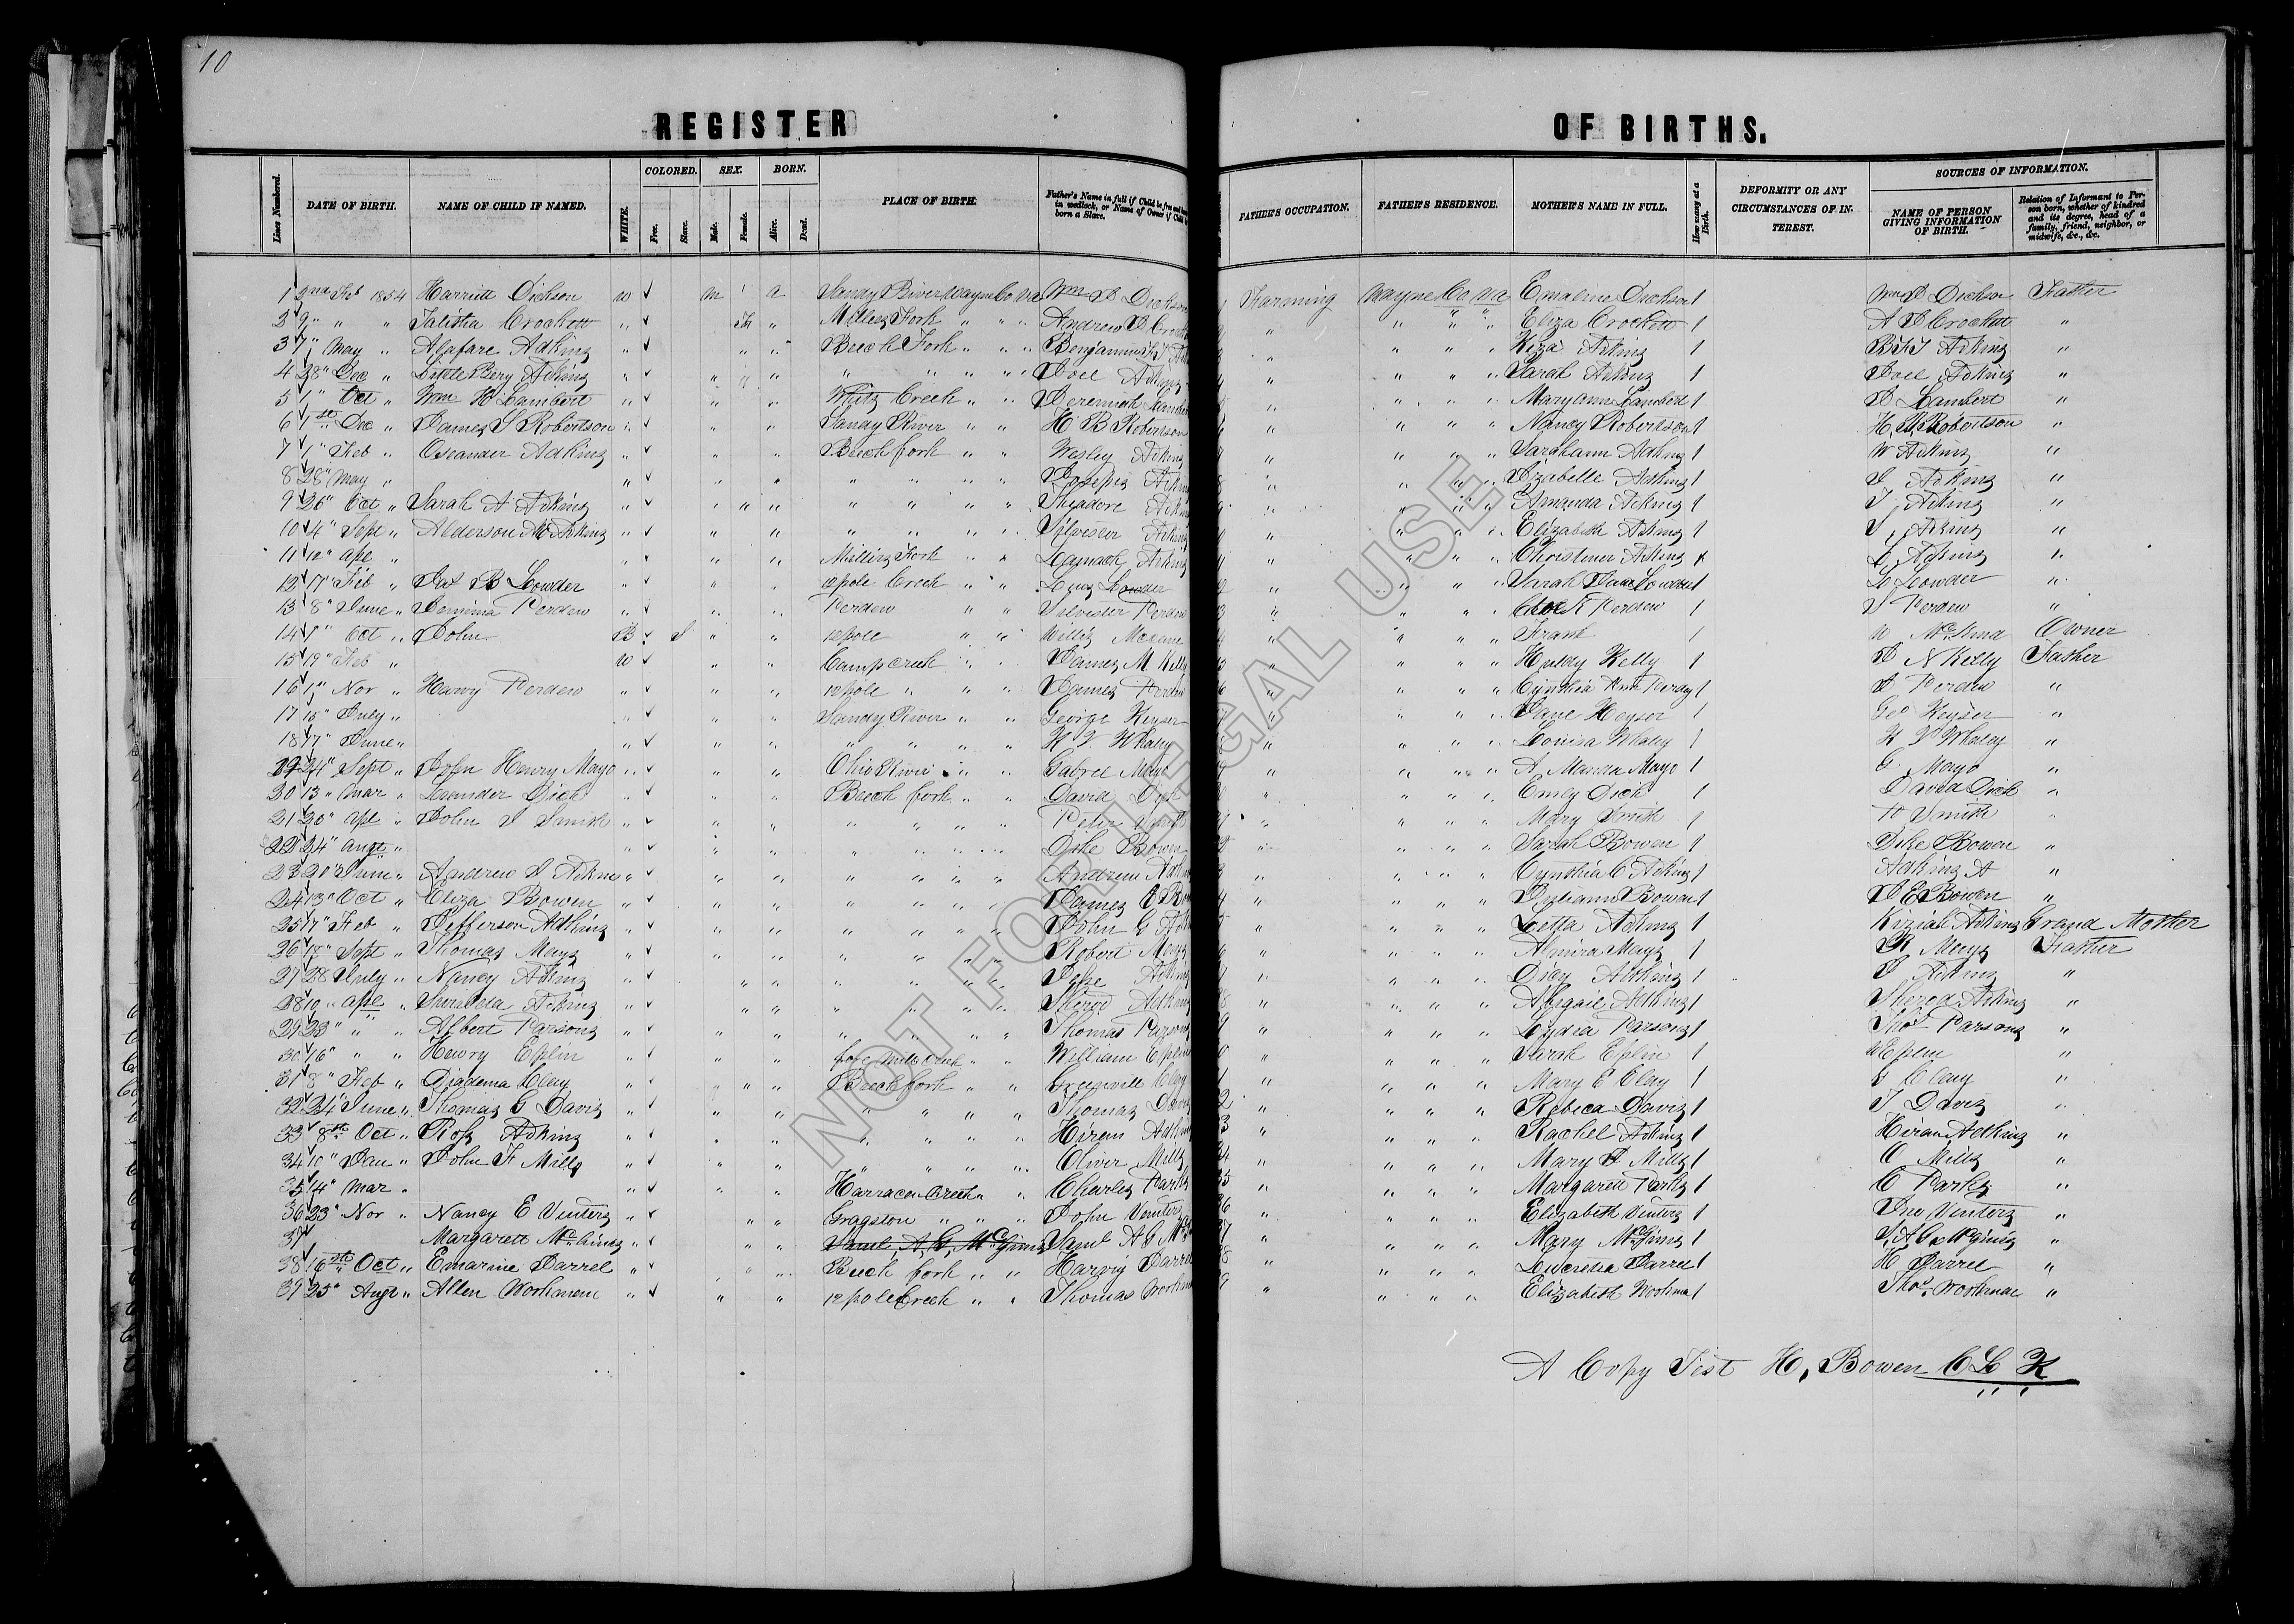 10
REGISTER OF BIRTHS.
Lines Numbered. DATE OF BIRTH. NAME OF CHILD IF NAMED. WHITE. COLORED. Free. Slave. SEX. Male. Female. BORN. Alive. Dead. PLACE OF BIRTH. Father's Name in full if Child be free and born in wedlock, or Name of Owner if Child born a Slave. FATHER'S OCCUPATION. FATHER'S RESIDENCE. MOTHER'S NAME IN FULL. How many at a Birth. DEFORMITY OR ANY CIRCUMSTANCES OF INTEREST. SOURCES OF INFORMATION. NAME OF PERSON GIVING INFORMATION OF BIRTH. Relation of Informant to Person born, whether of kindred and its degree, head of a family, friend, neighbor, or midwife, &c., &c.
1 2nd Feb 1854 Harriett Dickson W ✓ m a Sandy River Wayne Co Va Wm D Dickson Farming Wayne Co Va Emaline Dickson 1 Wm D Dickson Father
2 9 " " " Talitha Crockett " ✓ Fm " Millers Fork " " " Andrew D Crockett " " " " Eliza Crockett 1 A D Crockett "
3 7 " May " Alafare Adkins " ✓ " " Beech Fork " " " Benjamin " " " " Kiza Adkins 1 Adkins "
4 28 " Dec " Little Bery Adkins " ✓ " " " " " " Joel Adkins " " " " Sarah Adkins 1 Joel Adkins "
5 1 " Oct " Wm H Lambert " ✓ " " Creek " " Jeremiah Lambert " " " " Maryann Lambert 1 J Lambert "
6 1st Dec " James S Robertson " ✓ " " Sandy River " " H B Robertson " " " " Nancy Robertson 1 H, B, Robertson "
7 1 " Feb " Oseander Adkins " ✓ " " Beech fork " " Wesley Adkins " " " " Sarahann Adkins 1 W Adkins "
8 28 " May " " ✓ " " " " " " Adkins " " " " Adkins 1 J Adkins "
9 26 " Oct " Sarah A Adkins " ✓ " " " " " " Theadore Adkins " " " " Amanda Adkins 1 T, Adkins "
10 4 " Sept " Alderson Adkins " ✓ " " " " " " Silvester Adkins " " " " Elizabeth Adkins 1 S, Adkins "
11 " Apl " " ✓ " " Fork " " Adkins " " " " Christener Adkins L, Adkins "
12 17 " Feb " B Lowder " ✓ " " 12 pole Creek " " Lowder " " " " Sarah Jane Lowder 1 Lowder "
13 8 " June " Jemima Perdew " ✓ " " Perdew " " Silvester Perdew " " " " Perdew 1 S Perdew "
14 1 " Oct " John B ✓ S " " 12 pole " " Willis " " " " Frank 1 W Owner
15 19 " Feb " W ✓ " " Camp creek " " James M Kelly " " " " Huldy Kelly 1 J N Kelly Father
16 1 " Nor " Harvy Perdew " ✓ " " 12 pole " " " James Perdew " " " " Cynthia Ann 1 J Perdew "
17 15 " July " " ✓ " " Sandy River " " George Keyser " " " " Jane Keyser 1 Geo Keyser "
18 17 " June " " ✓ " " " " " " K V Whaley " " " " Louisa Whaley 1 K V Whaley "
19 24 " Sept " John Henry Mayo " ✓ " " Ohio River " " Gabrel Mayo " " " " A Manda Mayo 1 G Mayo "
20 13 " Mar " Leander Dick " ✓ " " Beech fork " " David Dick " " " " Emey Dick 1 David Dick "
21 20 " Apl " John S Smith " ✓ " " " " " " Peter Smith " " " " Mary Smith 1 P Smith "
22 24 " Augt " " ✓ " " " " " " Dike Bowen " " " " Sarah Bowen 1 Dike Bowen "
23 20 " June " Andrew J Adkins " ✓ " " " " " " Andrew Adkins " " " " Cynthia C Adkins 1 Adkins A "
24 13 " Oct " Eliza Bowen " ✓ " " " " " " James E Bowen " " " " Juliann Bowen 1 J E Bowen "
25 17 " Feb " Jefferson Adkins " ✓ " " " " " " John G Adkins " " " " Letta Adkins 1 Kiziah Adkins Grand Mother
26 18 " Sept " Thomas Mays " ✓ " " " " " " Robert Mays " " " " Almira Mays 1 R Mays Father
27 28 July " Nancy Adkins " ✓ " " " " " " Jesse Adkins " " " " Dicy Adkins 1 J Adkins "
28 10 " Apl " Adkins " ✓ " " " " " " Sherod Adkins " " " " Abigail Adkins 1 Sherod Adkins "
29 23 " " " Albert Parsons " ✓ " " " " " " Thomas Parsons " " " " Lydia Parsons 1 Thos Parsons "
30 16 " " " Henry Eplin " ✓ " " " " William Eplin " " " " Sarah Eplin 1 W Eplin "
31 8 " Feb " Diadema Clay " ✓ " " Beech fork " " Greenvill Clay " " " " Mary E Clay 1 G Clay "
32 24 " June " Thomas G Davis " ✓ " " " " " " Thomas Davis " " " " Rebeca Davis 1 T Davis "
33 8th Oct " Ross Adkins " ✓ " " " " " " Hiram Adkins " " " " Rachel Adkins 1 Hiram Adkins "
34 10 " Jan " John F Mills " ✓ " " " " " " Oliver Mills " " " " Mary J Mills 1 O Mills "
35 14 " Mar " " ✓ " " Creek " " Charles Parks " " " " Margarett Parks 1 C Parks "
36 23 " Nor " Nancy E Vinters " ✓ " " Gragston " " " John Venters " " " " Elizabeth Vinters 1 Jno Vinters "
37 Margarett McGinnis " ✓ " " Saml, A, G, McGinnis Saml A G " " " " Mary McGinnis 1 S, A G McGinnis "
38 16th Oct " Emarine Jarrel " ✓ " " Beech fork " " Harvy Jarrel " " " " Lucretia Jarrel 1 H Jarrel "
39 25 " Augt " Allen Workman " ✓ " " 12 pole Creek " " Thomas Workman " " " " Elizabeth Workman 1 Thos. Workman "
A Copy Test H, Bowen C L K
NOT FOR LEGAL USE